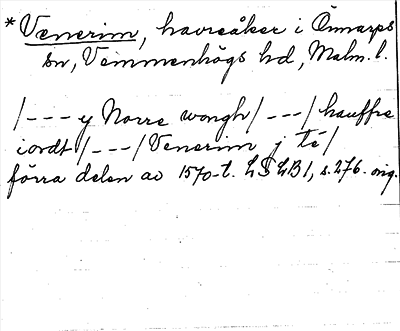 *Venerim, havreåker i Önnarps
sn, Vemmenhögs hd, Malm. l.
/--- y Norre wongh/---/hauffre
iordt/---/Venerim j té/
förra delen av 1570-t. LSLB1, s.276. orig.